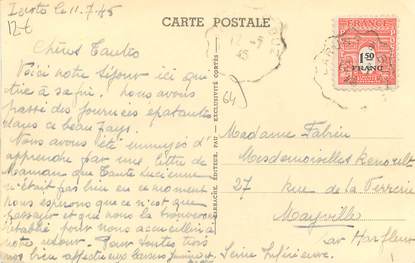 le 11.7.45
CARTE POSTALE
12-t
12-7
45
64
FRANCE
1F50
FRANC
Chères Tantes
Voici notre séjour ici qui
tire à sa fin, nous avons
passé des journées épatantes
dans ce beau pays.
Nous avons été ennuyés d'
apprendre par une lettre de
Maman que Tante Lucienne
n'était pas bien en ce moment
nous espérons que ce n'est que
passager et que nous la trouverons
rétablie pour nous accueillir à
notre retour. Pour toutes trois
nos bien affectueux baisers
ÉDITEUR, PAU - EXCLUSIVITÉ
Madame Fabrin
Mesdemoiselles Renoult
27 rue de la Verrerie
Mayville
par Harfleur
Seine Inférieure